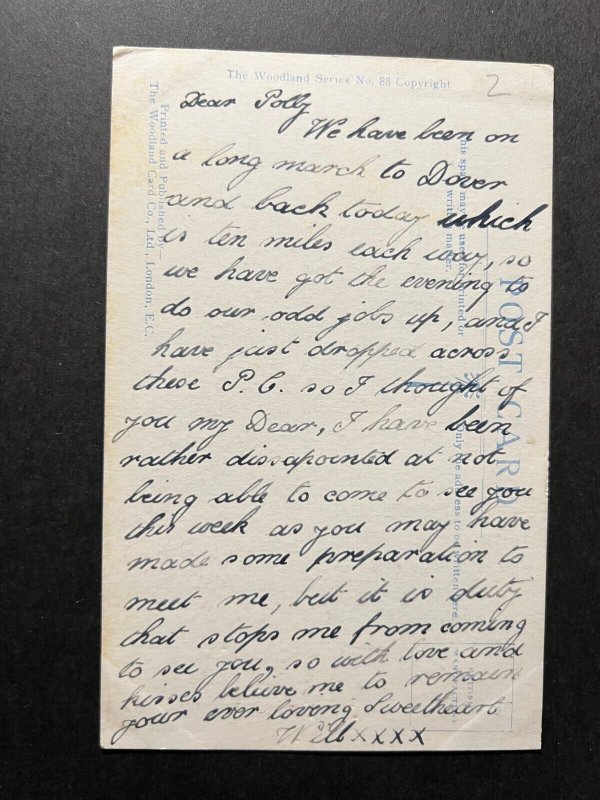 The Woodland Series No. 88 Copyright
2
Dear Polly
We have been on
a long march to Dover
and back today which
is ten miles each way, so
we have got the evening to
do our odd jobs up, and I
have just dropped across
these P.C. so I thought of
you my Dear, I have been
rather dissapointed at not
being able to come to see you
this week as you may have
made some preparation to
meet me, but it is duty
that stops me from coming
to see you, so with love and
kisses believe me to remain
your ever loving Sweetheart
Will xxxx
Printed and Published by—
The Woodland Card Co., Ltd., London, E.C.
POST CARD
This space may be used for printed or
written matter.
Only the address to be written here.